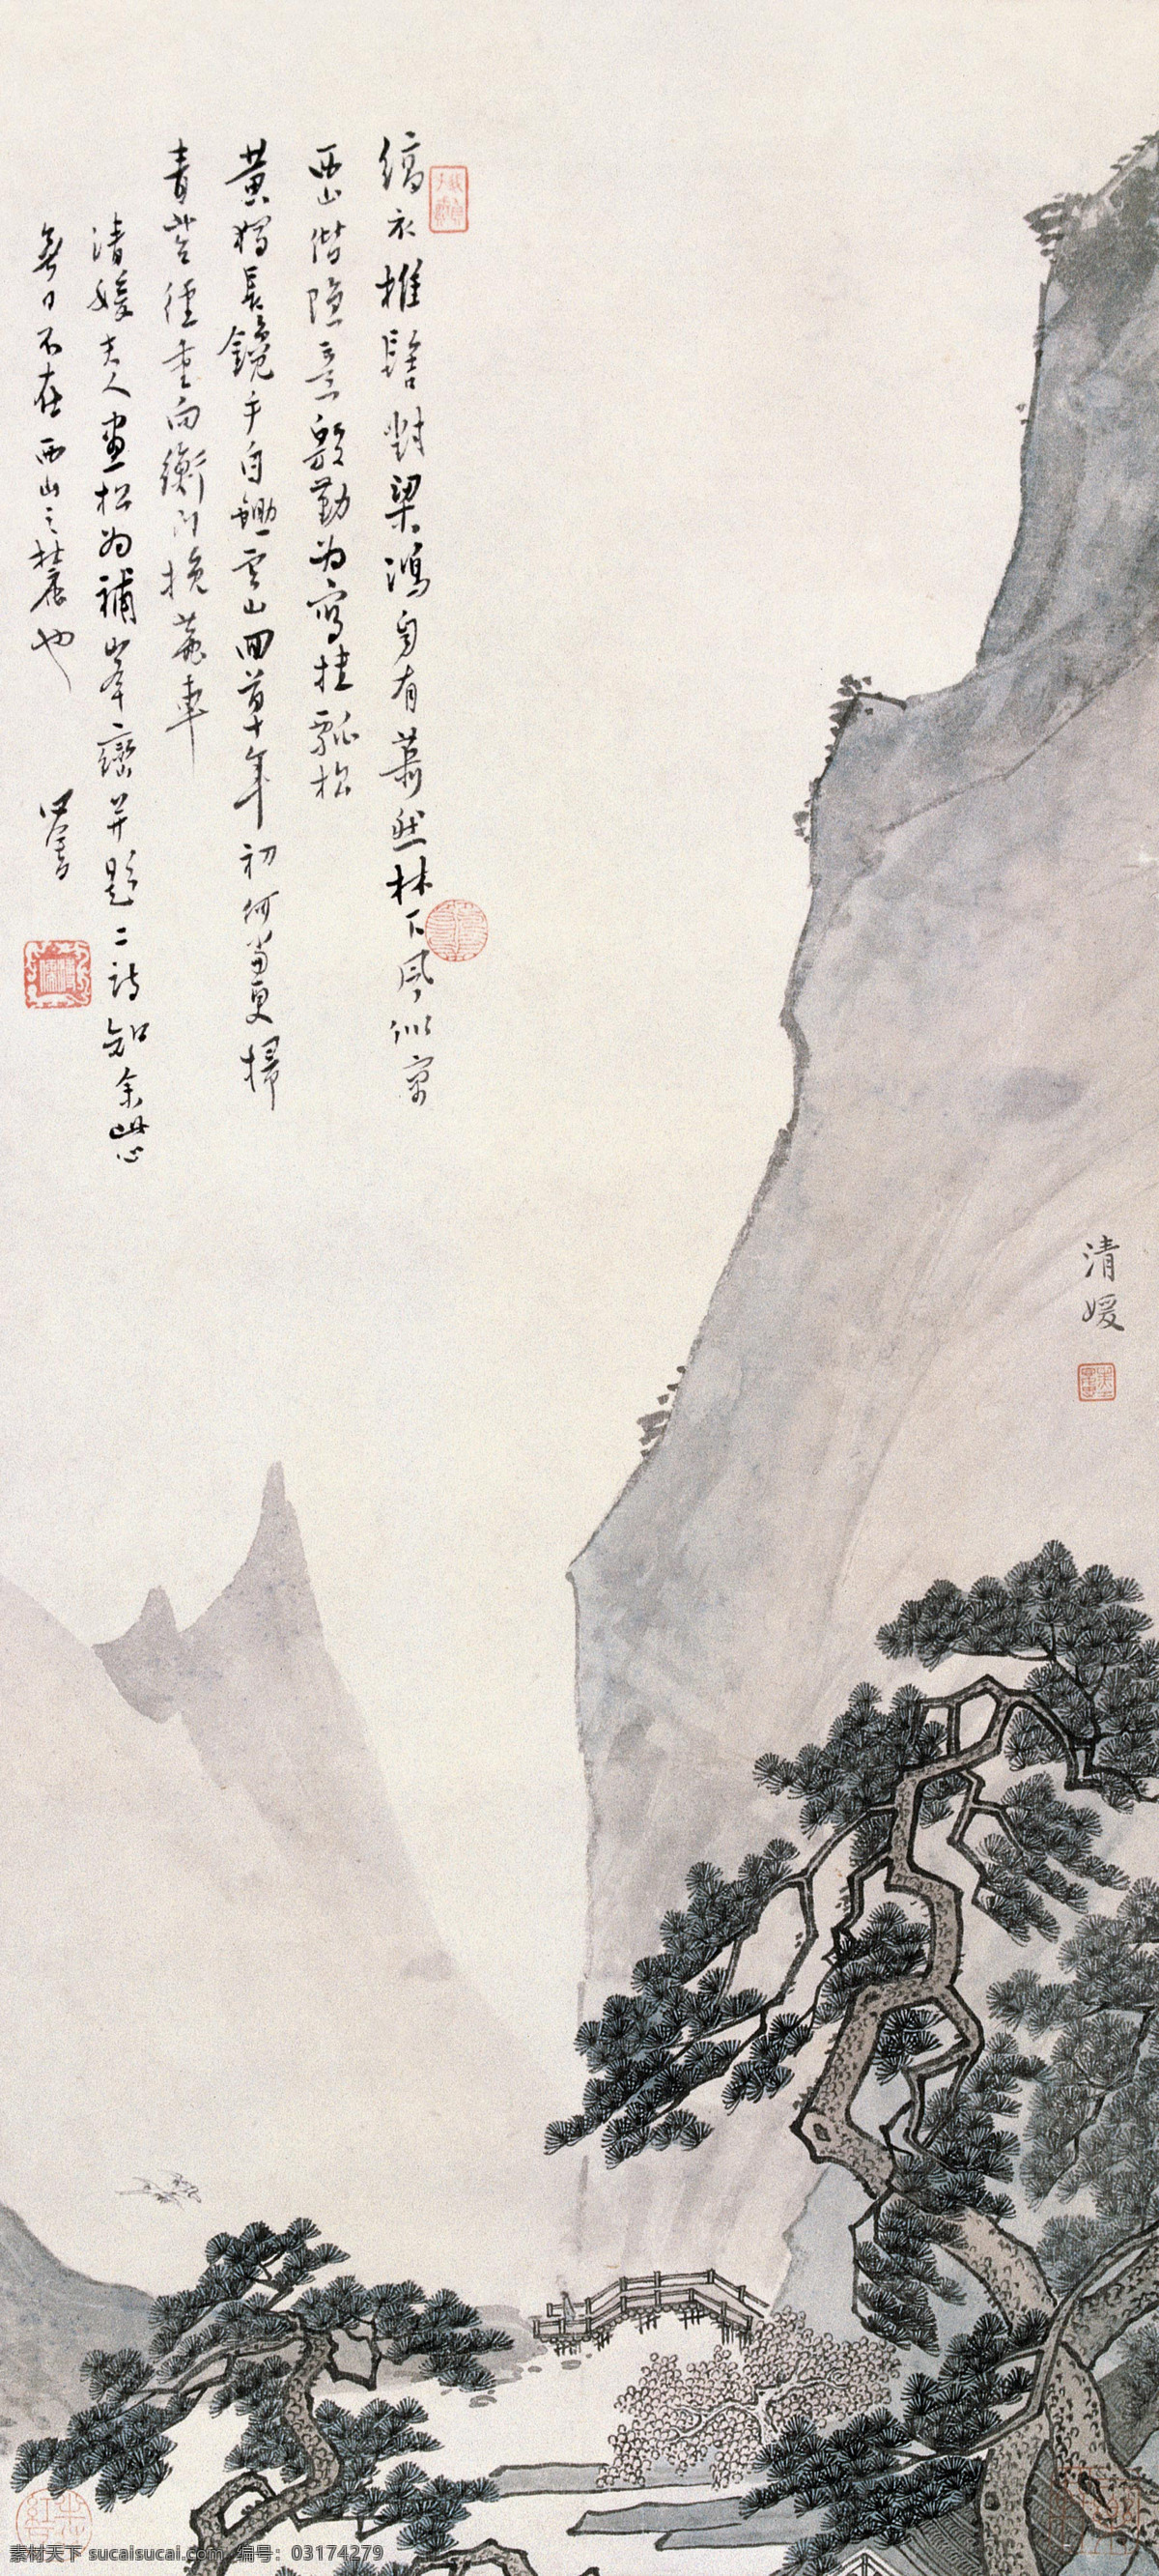 縞衣椎髻對梁鴻自有蕭然林下風似
西山偕隱意殷勤為寫挂瓢松
黃獨長鑱手自鋤雲山回首十年初何當更掃
青苔徑重向衡門挽鹿車
清媛夫人畫松為補峯巒并題二詩知余此心
無日不在西山之麓也 心畬
清媛
素材天下 sucaisucai.com 编号：03174279